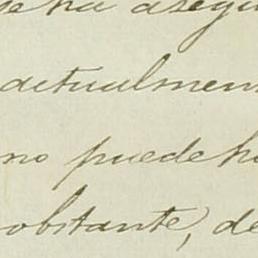 se ha asegu
actualmen
no puede ha
obstante, de